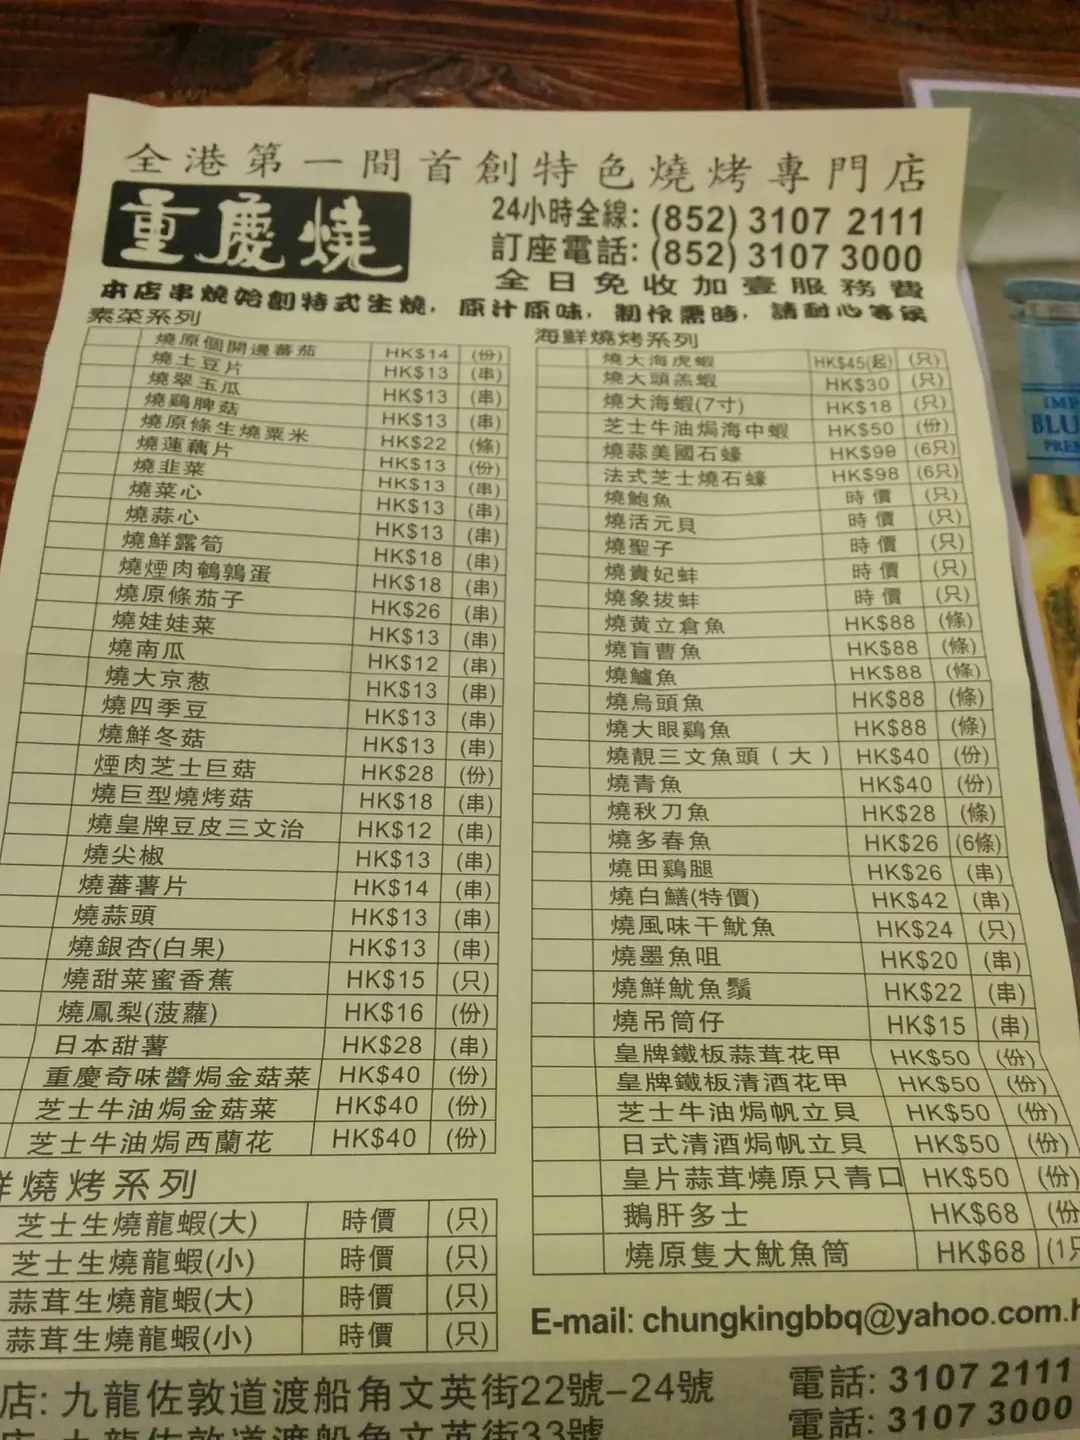 全港第一間首創特色燒烤專門店
重慶燒
24小時全線: (852) 3107 2111
訂座電話: (852) 3107 3000
全日免收加壹服務費
本店串燒始創特式生燒，原汁原味，制作需時，請耐心等候
素菜系列
燒原個開邊蕃茄 HK$14 (份)
燒土豆片 HK$13 (串)
燒翠玉瓜 HK$13 (串)
燒鷄脾菇 HK$13 (串)
燒原條生燒粟米 HK$22 (條)
燒蓮藕片 HK$13 (份)
燒韭菜 HK$13 (串)
燒菜心 HK$13 (串)
燒蒜心 HK$13 (串)
燒鮮露筍 HK$18 (串)
燒煙肉鵪鶉蛋 HK$18 (串)
燒原條茄子 HK$26 (串)
燒娃娃菜 HK$13 (串)
燒南瓜 HK$12 (串)
燒大京葱 HK$13 (串)
燒四季豆 HK$13 (串)
燒鮮冬菇 HK$13 (串)
煙肉芝士巨菇 HK$28 (份)
燒巨型燒烤菇 HK$18 (串)
燒皇牌豆皮三文治 HK$12 (串)
燒尖椒 HK$13 (串)
燒蕃薯片 HK$14 (串)
燒蒜頭 HK$13 (串)
燒銀杏(白果) HK$13 (串)
燒甜菜蜜香蕉 HK$15 (只)
燒鳳梨(菠蘿) HK$16 (份)
日本甜薯 HK$28 (串)
重慶奇味醬焗金菇菜 HK$40 (份)
芝士牛油焗金菇菜 HK$40 (份)
芝士牛油焗西蘭花 HK$40 (份)
燒烤系列
芝士生燒龍蝦(大) 時價 (只)
芝士生燒龍蝦(小) 時價 (只)
蒜茸生燒龍蝦(大) 時價 (只)
蒜茸生燒龍蝦(小) 時價 (只)
海鮮燒烤系列
燒大海虎蝦 HK$45(起) (只)
燒大頭羔蝦 HK$30 (只)
燒大海蝦(7寸) HK$18 (只)
芝士牛油焗海中蝦 HK$50 (份)
燒蒜美國石蠔 HK$98 (6只)
法式芝士燒石蠔 HK$98 (6只)
燒鮑魚 時價 (只)
燒活元貝 時價 (只)
燒聖子 時價 (只)
燒貴妃蚌 時價 (只)
燒象拔蚌 時價 (只)
燒黄立倉魚 HK$88 (條)
燒盲曹魚 HK$88 (條)
燒鱸魚 HK$88 (條)
燒烏頭魚 HK$88 (條)
燒大眼鷄魚 HK$88 (條)
燒靚三文魚頭（大） HK$40 (份)
燒青魚 HK$40 (份)
燒秋刀魚 HK$28 (條)
燒多春魚 HK$26 (6條)
燒田鷄腿 HK$26 (串)
燒白鱔(特價) HK$42 (串)
燒風味干魷魚 HK$24 (只)
燒墨魚咀 HK$20 (串)
燒鮮魷魚鬚 HK$22 (串)
燒吊筒仔 HK$15 (串)
皇牌鐵板蒜茸花甲 HK$50 (份)
皇牌鐵板清酒花甲 HK$50 (份)
芝士牛油焗帆立貝 HK$50 (份)
日式清酒焗帆立貝 HK$50 (份)
皇片蒜茸燒原只青口 HK$50 (份)
鵝肝多士 HK$68 (份
燒原隻大魷魚筒 HK$68 (1只
E-mail: chungkingbbq@yahoo.com.h
店: 九龍佐敦道渡船角文英街22號–24號 電話: 3107 2111
店: 九龍佐敦道渡船角文英街33號 電話: 3107 3000
IMP
BLU
PREM